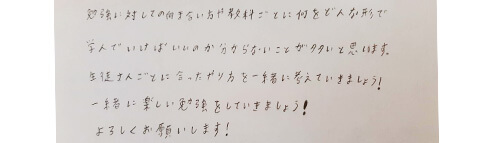 勉強に対しての向き合い方や教科ごとに何をどんな形で
学んでいけばいいのか分からないことが多いと思います。
生徒さんごとに合ったやり方を一緒に考えていきましょう!
一緒に楽しい勉強をしていきましょう!
よろしくお願いします!